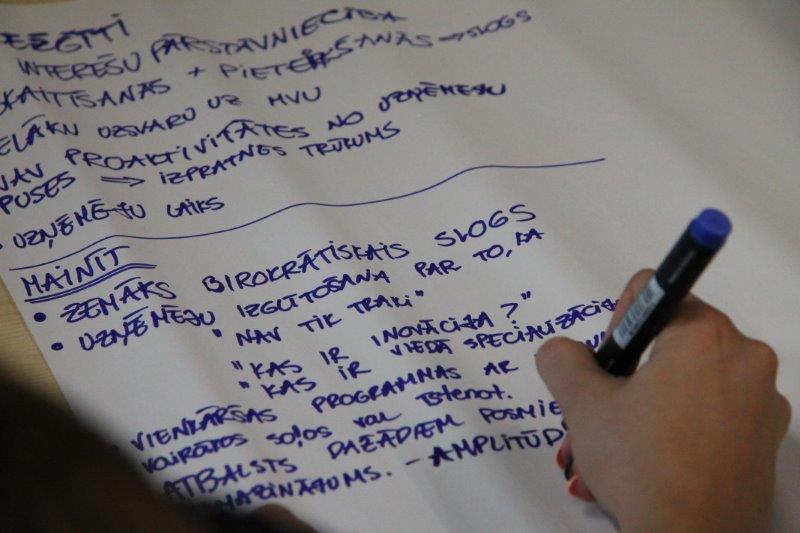 INTEREŠU PĀRSTĀVNIECĪBA
SKAITĪŠANAS + PIETEIKŠANĀS → SLOGS
LIELĀKU UZSVARU UZ MVU
NAV PROAKTIVITĀTES NO UZŅĒMĒJU
PUSES ⇒ IZPRATNES TRŪKUMS
• UZŅĒMĒJU LAIKS
MAINĪT
• ZEMĀKS BIROKRĀTISKAIS SLOGS
• UZŅĒMĒJU IZGLĪTOŠANA PAR TO, KA
" NAV TIK TRAKI"
"KAS IR INOVĀCIJA?"
"KAS IR VIEDĀ SPECIALIZĀCIJA
VIENKĀRŠAS PROGRAMMAS AR
vairākos soļos var īstenot.
ATBALSTS DAŽĀDIEM POSMIE
- AMPLITŪD